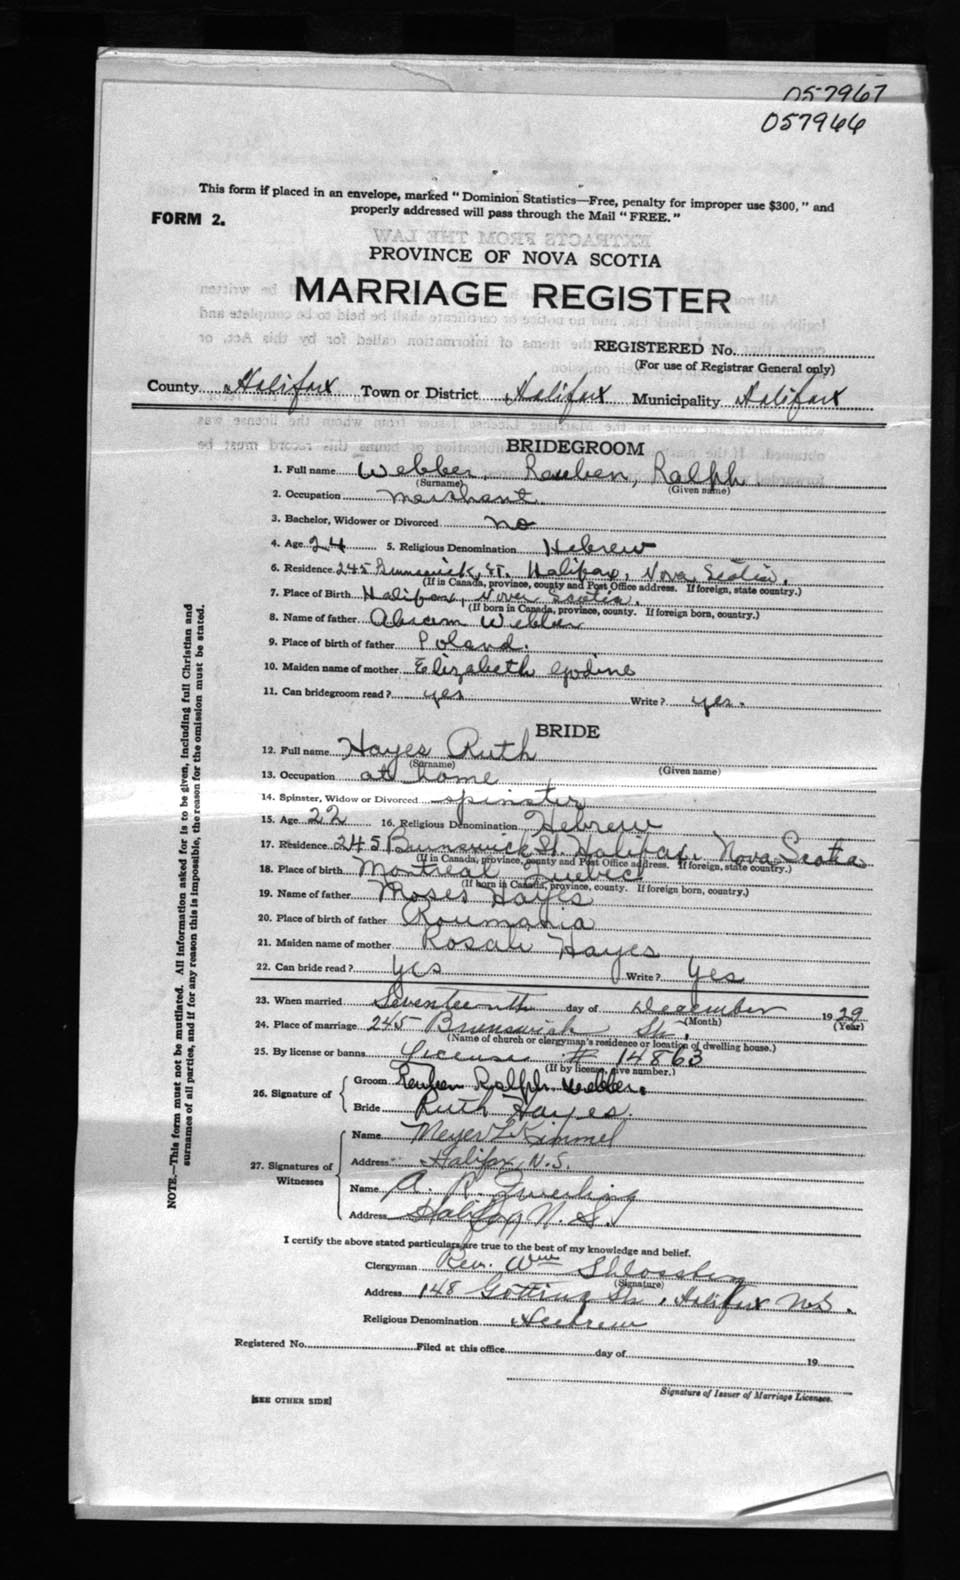 057967
057966
This form if placed in an envelope, marked " Dominion Statistics—Free, penalty for improper use $300, " and
properly addressed will pass through the Mail " FREE. "
FORM 2.
EXTRACTS FROM THE LAW
PROVINCE OF NOVA SCOTIA
MARRIAGE REGISTER
REGISTERED No.
(For use of Registrar General only)
County Halifax Town or District Halifax Municipality Halifax
BRIDEGROOM
1. Full name Webber, Reuben, Ralph
(Surname) (Given name)
2. Occupation merchant.
3. Bachelor, Widower or Divorced no
4. Age 24 5. Religious Denomination Hebrew
6. Residence 245 Brunswick, St. Halifax, Nova Scotia.
(If in Canada, province, county and Post Office address. If foreign, state country.)
7. Place of Birth Halifax, Nova Scotia.
(If born in Canada, province, county. If foreign born, country.)
8. Name of father Abram Webber
9. Place of birth of father Poland.
10. Maiden name of mother Elizabeth Godine
11. Can bridegroom read? yes Write? yes.
BRIDE
12. Full name Hayes Ruth
(Surname) (Given name)
13. Occupation at home
14. Spinster, Widow or Divorced spinster
15. Age 22 16. Religious Denomination Hebrew
17. Residence 245 Brunswick St. Halifax, Nova Scotia
(If in Canada, province, county and Post Office address. If foreign, state country.)
18. Place of birth Montreal Quebec
(If born in Canada, province, county. If foreign born, country.)
19. Name of father Moses Hayes
20. Place of birth of father Roumania
21. Maiden name of mother Rosali Hayes
22. Can bride read? yes Write? yes
23. When married Seventeenth day of December 1929
(Month) (Year)
24. Place of marriage 245 Brunswick St.
(Name of church or clergyman's residence or location of dwelling house.)
25. By license or banns License # 14863
(If by license, give number.)
26. Signature of Groom Reuben Ralph Webber.
Bride Ruth Hayes.
27. Signatures of Witnesses
Name Meyer L Kimmel
Address Halifax, N.S.
Name A. R. Zwerling
Address Halifax N.S.
I certify the above stated particulars are true to the best of my knowledge and belief.
Clergyman Rev. Wm
(Signature)
Address 148 Gotting St, Halifax N.S.
Religious Denomination Hebrew
Registered No. Filed at this office day of 19
Signature of Issuer of Marriage Licenses.
[SEE OTHER SIDE]
NOTE.—This form must not be mutilated. All information asked for is to be given, including full Christian and
surnames of all parties, and if for any reason this is impossible, the reason for the omission must be stated.